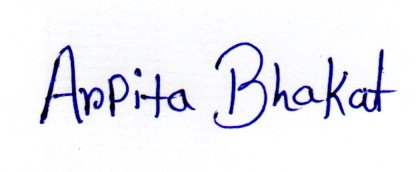 Arpita Bhakat